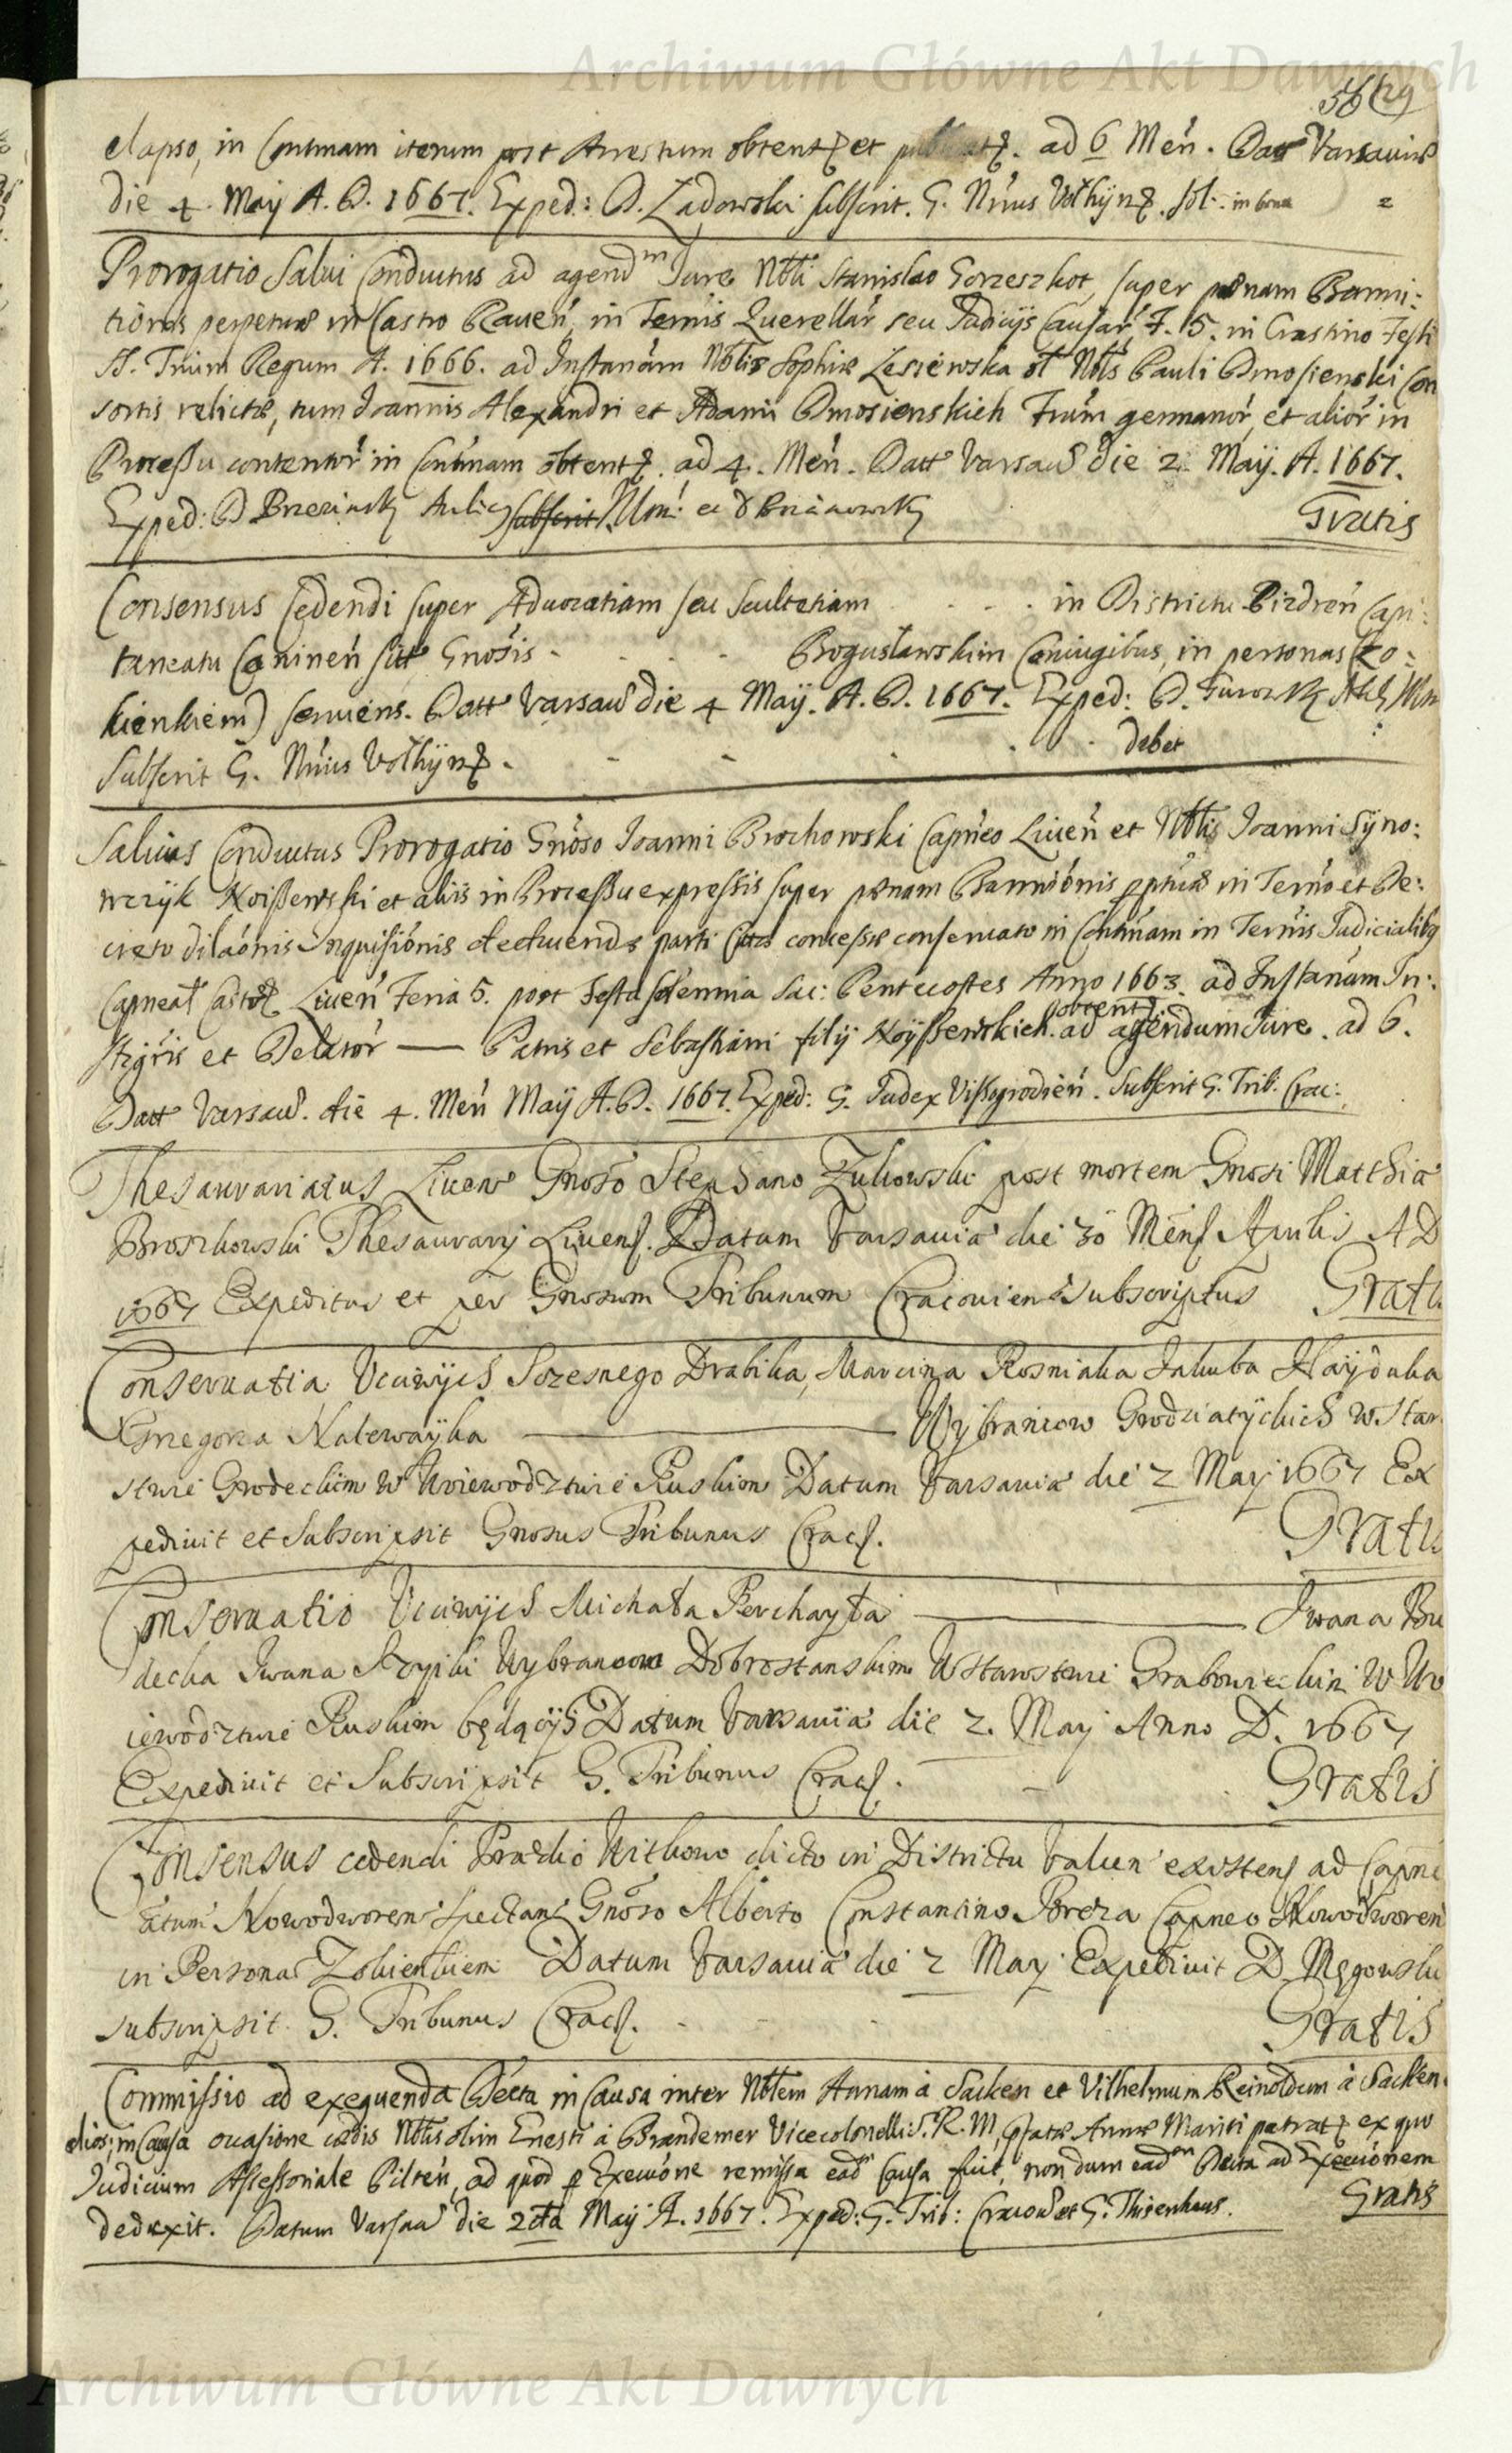 Archiwum Główne Akt Dawnych
elapso, in Contumam iterum post Arrestum obtent et ad 6 Men. Dat Varsauiæ
die 4. Maÿ A. D. 1667. Exped: D. Zadowski subscrit. G. Nrius Volhÿn. sol.
Prorogatio Salui Conductus ad agendm Jure Nbli Stanislao Gorzeszkot, super pœnam Banni:
tionis perpetuæ in Castro Rauen, in Termis Querellar seu Judicijs Causar, F. 5. in Crastino Festi
SS. Trium Regum A. 1666. ad Instanam Nblis Sophiæ Lesiewska ol Nbls Pauli Dmosienski Con
sortis relictæ, tum Joannis Alexandri et Adami Dmosienskich Frum germanor, et alior in
Processu contentor in Contumam obtent. ad 4. Men. Datt Varsau die 2. Maÿ. A. 1667.
Exped: D Brezinsky Aulic subscrit
Gratis
Consensus cedendi super Aduocatiam seu Scultetiam . . . . in Districtu Pizdren Capi:
taneatu Coninen sitt Gnosis - . . . Bogusławskim Coniugibus, in personas (Zo:
kienkiem) seruiens. Datt Varsau die 4 Maÿ. A. D. 1667. Exped: D.
Subscrit G. Nrius Volhÿn. - - - . . . debet
Saluus Conductus Prorogatio Gnoso Joanni Brochowski Capneo Liuen et Nblis Joanni Sÿno:
wczÿk Koissewski et aliis in Processu expressis super pœnam Bannionis pptuæ in Termo et De:
creto dilaonis Inquisionis deducendæ parti Cittæ concessæ conseruato in Contumam in Termis Judicialibq
Capneal Castr Liuen Feria 5. post Festa solennia Sac: Pentecostes Anno 1663. ad Instanam In:
stigris et Delator — Patris et Sebastiani filÿ Koÿssewskich obtent. ad agendum Jure. ad 6.
Datt Varsau. die 4. Men Maÿ A. D. 1667. Exped: G. Judex Vissogrodien. Subscrit G. Trib. Crac:
Thesaurariatus Liuen Gnoso Stephano Zukowski post mortem Gnosi Matthiæ
Broszkowski Thesaurarij Liuens. Datum Varsauiæ die 30 Mens Aprilis A D
1667 Expeditus et per Gnosum Tribunum Cracouien Subscriptus Gratis
Conseruatia Vcciwÿch Szczesnego Drabika, Marcina Rosniaka Jakuba Haÿduka
Grzegorza Nalewaÿka — Wÿbrancow Grodziatÿckich w Star
stwie Grodeckim w Woiewodztwie Ruskim Datum Varsauiæ die 2 Maij 1667 Ex
pediuit et Subscripsit Gnosus Tribunus Cracs.
Gratis
Conseruatio Vcciwÿch Michała Perchayła — Iwana Bu
decka Iwana Wybrancow Dobrostanskim Wstarostwie Grabowieckim W Wo
iewodztwie Ruskim będącÿch Datum Varsauiæ die 2. Maij Anno D. 1667
Expediuit et Subscripsit G. Tribunus Cracs.
Gratis
Consensus cedendi Prædio Witkowo dicto in Districtu Valcen existens ad Capne
atum Nowodworen spectans Gnoso Alberto Constantino Breza Capneo Nowodworen
in Personas Zokienkiem Datum Varsauiæ die 2 Maij Expediuit D
subscripsit. G. Tribunus Cracs.
Gratis
Commissio ad exequenda Decta in Causa inter Nblem Annam à Sacken et Vilhelmum Reinoldum à Sacken
alios; in Causa occasione cædis Nblis olim Ernesti à Brandemer Vicecolonelli S. R. M, pfatæ Annæ Mariti patrat ex quo
Judicium Assessoriale Pilten, ad quod p Execuone remissa ead Causa fuit, non dum ead Decta ad Execuonem
deduxit. Datum Varsau die 2da Maÿ A. 1667. Exped: G. Trib: Cracou et G. Thisenhaus.
Gratis
Archiwum Główne Akt Dawnych